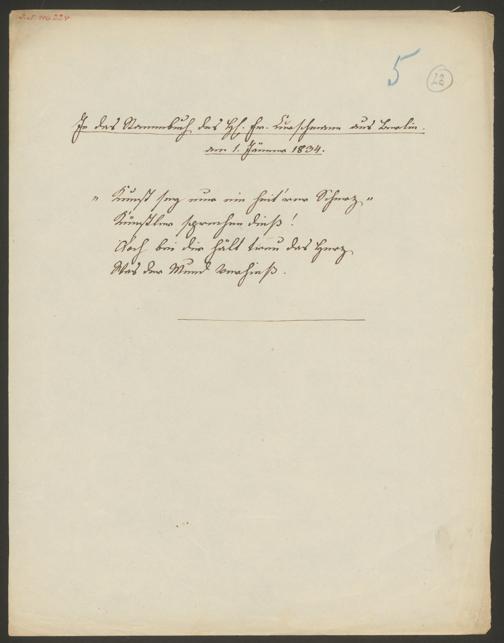 5
22
In das Stammbuch des H. Fr. Curschmann aus Berlin.
am 1. Jänner 1834.
„Kunst sey nur ein heit'rer Scherz„
Künstler sprechen dieß!
Doch bei dir hält treu das Herz
Was der Mund verhieß.